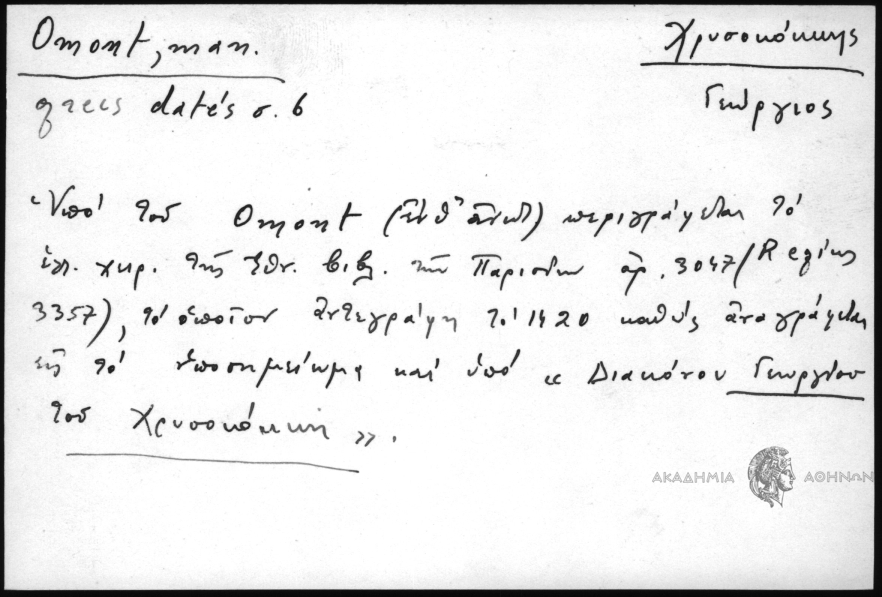 Omont, man.
grecs datés σ. 6
Χρυσοκόκκης
Γεώργιος
Ὑπό τοῦ Omont (ἔνθ' ἀνωτ) περιγράφεται τό
ἑλ. χειρ. τῆς Ἐθν. βιβλ. τῶν Παρισίων ἀρ. 3047 (Regius
3357), τό ὁποῖον ἀντεγράφη τό 1420 καθώς ἀναγράφεται
εἰς τό ὑποσημείωμα καί ὑπό « Διακόνου Γεωργίου
τοῦ Χρυσοκόκκη ».
ΑΚΑΔΗΜΙΑ ΑΘΗΝΩΝ